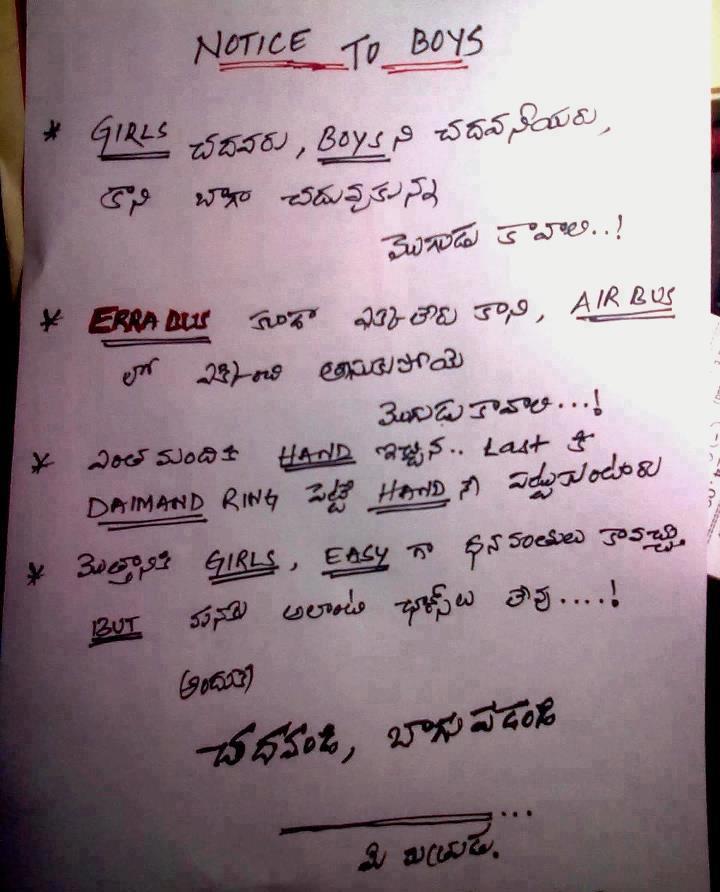 NOTICE TO BOYS
* GIRLS చదవరు, BOYS ని చదవనీయరు,
కాని బాగా చదువుకున్న
మొగుడు కావాలి..!
* ERRA BUS కూడా ఎక్కలేరు కాని, AIR BUS
లో ఎక్కించి తీసుకుపోయె
మొగుడు కావాలి...!
* ఎంత మందికి HAND ఇచ్చిన.. Last కి
DAIMAND RING పెట్టే HAND నే పట్టుకుంటారు
* మొత్తానికి GIRLS, EASY గా ధనవంతులు కావచ్చు
BUT మనకు అలాంటి ఛాన్స్‌లు లేవు....!
అందుకే
చదవండి, బాగుపడండి
...
మీ